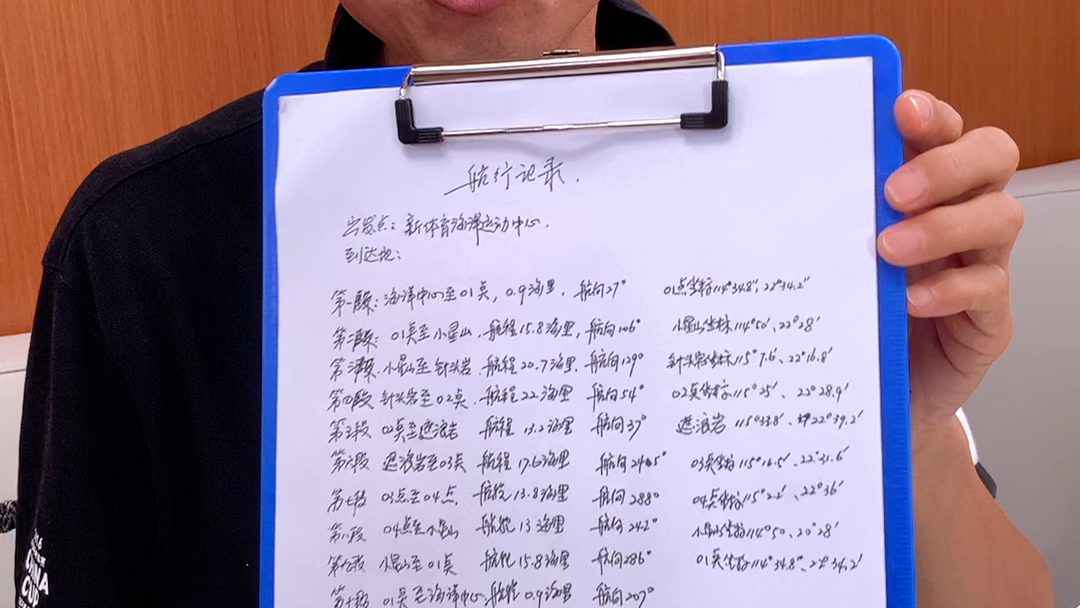 航行记录.
出发点：新体育海洋运动中心.
到达地：
第一段：海洋中心至01点，0.9海里，航向27° 01点坐标114°34.8'、22°34.2'
第二段：01点至小星山，航程15.8海里，航向106° 小星山坐标114°50'、22°28'
第三段 小星山至针头岩，航程20.7海里，航向129° 针头岩坐标115°7.6'、22°16.8'
第四段 针头岩至02点，航程22海里 航向54° 02点坐标115°25' 22°28.9'
第五段 02点至遮浪岩 航程13.2海里 航向37° 遮浪岩 115°33.8' 22°39.2'
第六段 遮浪岩至03点 航程17.6海里 航向245° 03点坐标115°16.5'、22°31.6'
第七段 03点至04点 航程13.8海里 航向288° 04点坐标115°2.2'、22°36'
第八段 04点至小星山 航程13海里 航向242° 小星山坐标114°50、20°28'
第九段 小星山至01点 航程15.8海里 航向286° 01点坐标114°34.8"、22°34.2'
第十段 01点至海洋中心，航程0.9海里 航向207°
CHINA
CUP